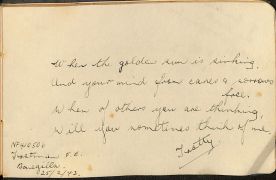 When the golden sun is sinking,
And your mind from cares & sorrows
free.
When of others you are thinking,
Will you sometimes think of me.
Trotty.
Trotman F.E.
Bonegilla.
25/2/42.